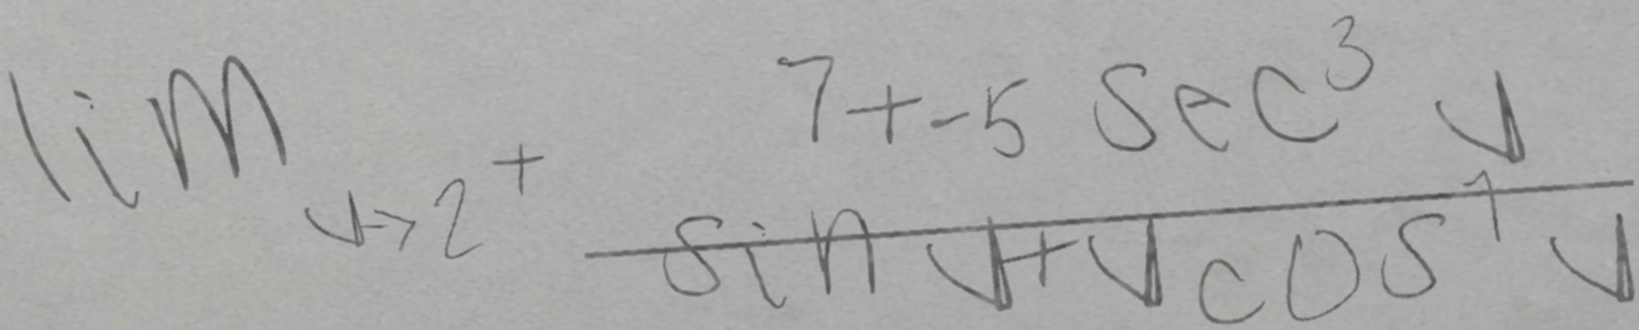 lim_{v→2^+} \frac{7+-5 sec^3 v}{sin v+v cos^1 v}